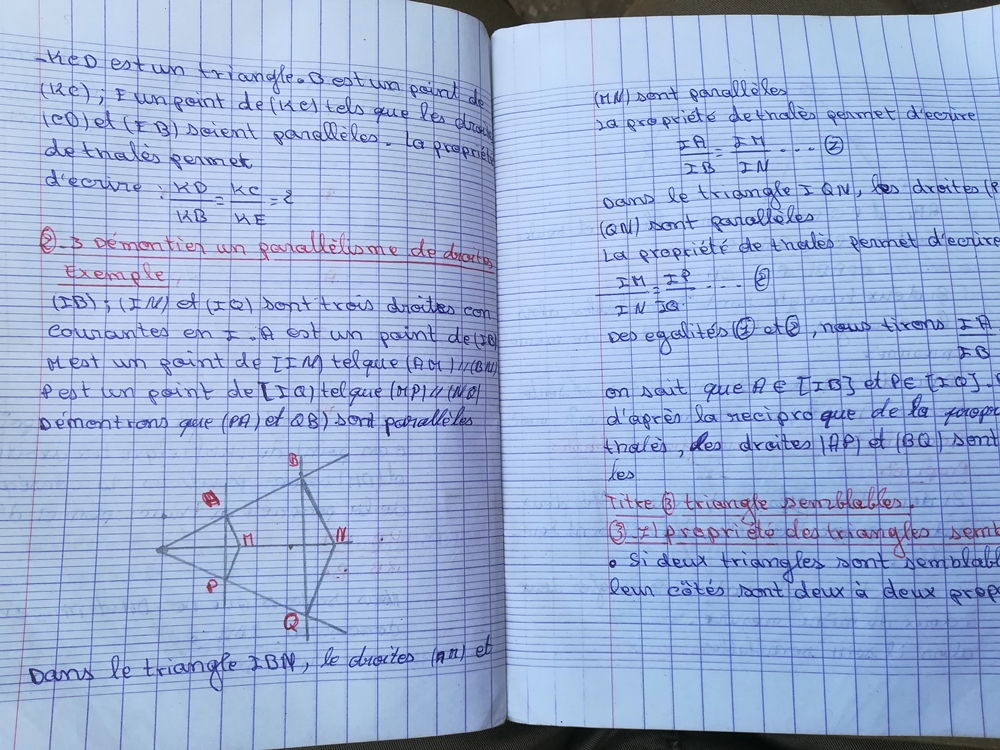 -KCD est un triangle. B est un point de
(KC); E un point de (KC) tels que les droites
(CD) et (EB) soient parallèles. La propriété
de thalès permet
d'ecrire : KD/KB = KC/KE = 2
②-3 Démontrer un parallèlisme de droites
Exemple
(IB); (IN) et (IQ) sont trois droites con
courantes en I. A est un point de (IB)
M est un point de [IN) tel que (AM) // (BN)
P est un point de [IQ) tel que (MP) // (NQ)
Démontrons que (PA) et QB) sont parallèles
B
A
M
N
P
Q
Dans le triangle IBN, le droites (AM) et
(MN) sont parallèles
La propriété de thalès permet d'ecrire
IA/IB = IM/IN .... ②
Dans le triangle I QN, les droites (P
(QN) sont parallèles
La propriété de thalès permet d'ecrire
IM/IN = IP/IQ .... ②
Des egalités ① et ②, nous tirons IA
IB
on sait que A ∈ [IB] et P ∈ [IQ].
d'après la reciproque de la prop
thalès, des droites (AP) et (BQ) sont
les
Titre ③ triangle semblables.
③ 1/ propriété des triangles semb
• Si deux triangles sont semblabl
leur côtés sont deux à deux prop